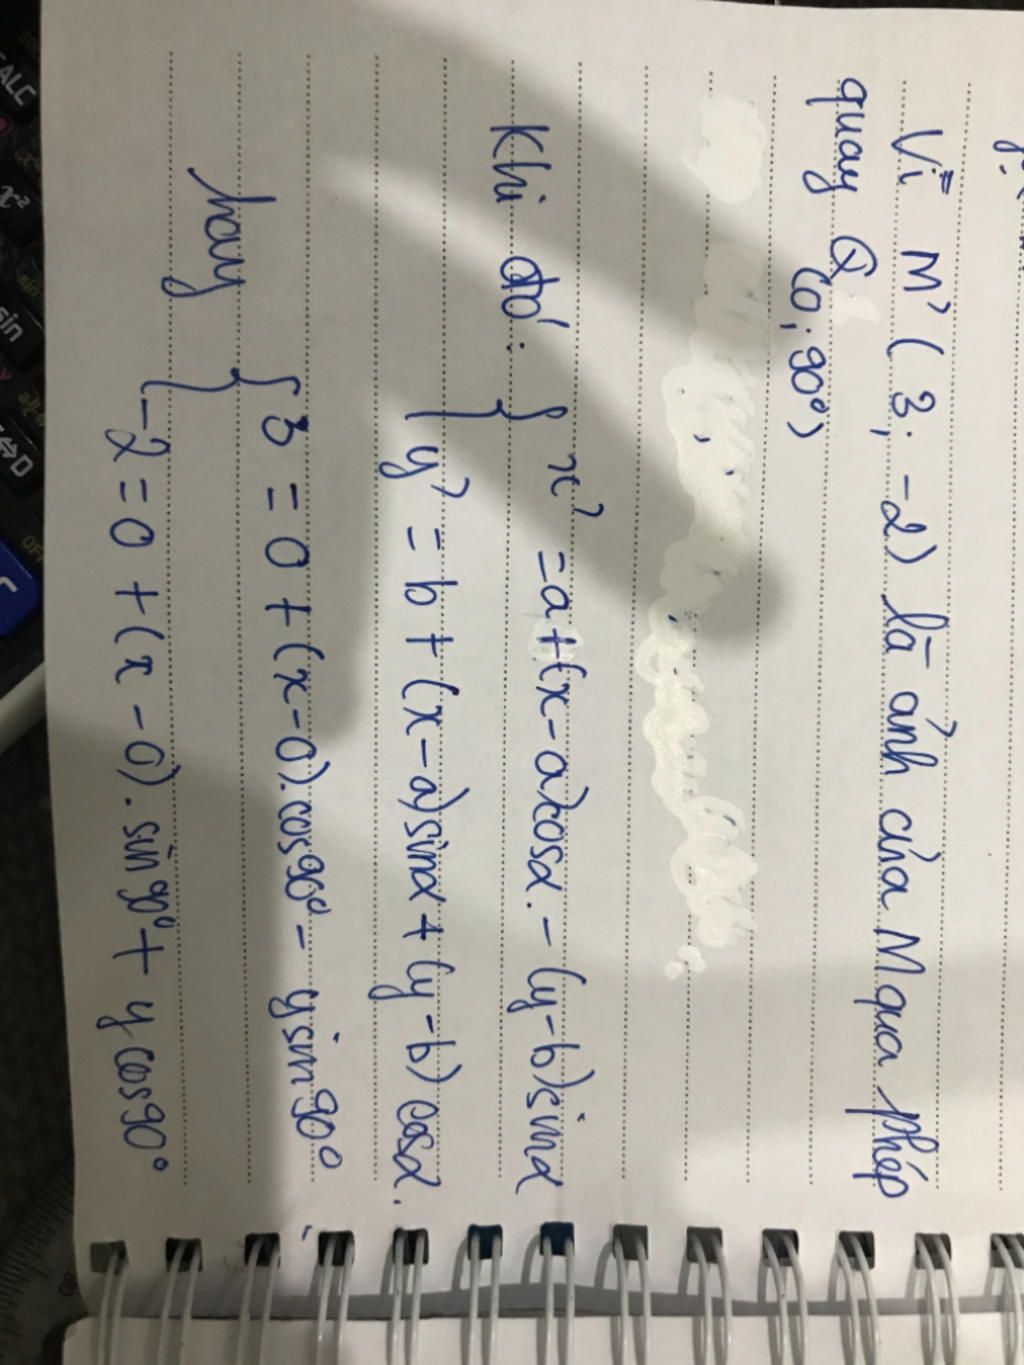 Vì M' (3; -2) là ảnh của M qua phép
quay Q (O; 90°)
Khi đó: { x' = a + (x - a)cosα. - (y - b)sinα
y' = b + (x - a)sinα + (y - b) cosα.
hay { 3 = 0 + (x - 0).cos90° - y sin 90°
-2 = 0 + (x - 0). sin 90° + y cos90°
ALC
x²
sin
sin
S⇔D
OFF